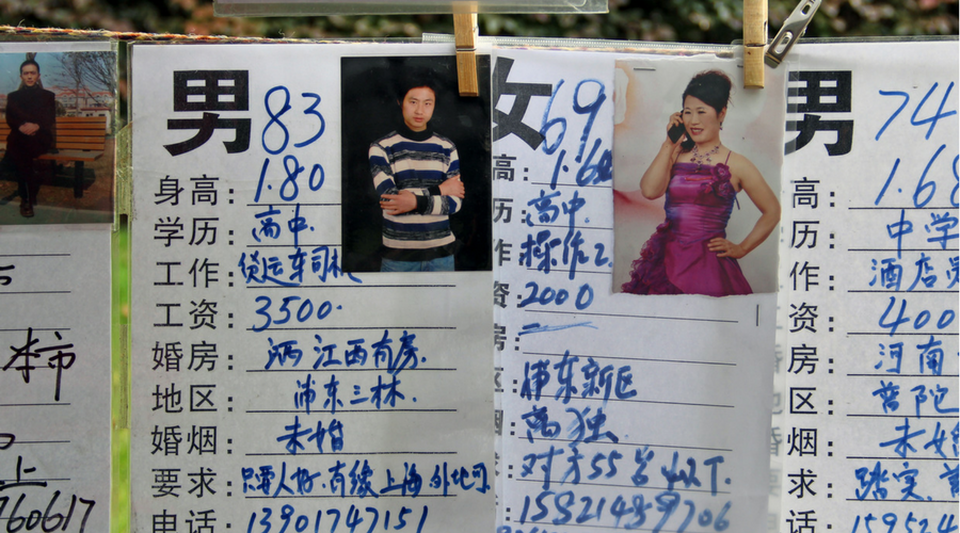 本市
上
760617
男 83
身高: 1.80
学历: 高中.
工作: 货运车司机
工资: 3500.
婚房: 江西有房.
地区: 浦东三林.
婚烟: 未婚
要求: 只要人好.有缘上海.外地可.
电话: 13901747151
女 69
高: 1.60
历: 高中.
作 操作工
资: 2000
房:
区: 浦东新区
烟 离独.
求: 对方55岁以下.
15821489706
男 74
高: 1.68
历: 中学
作: 酒店
资: 400
房: 河南
区: 普陀
烟: 未婚
求: 踏实.
话: 159524